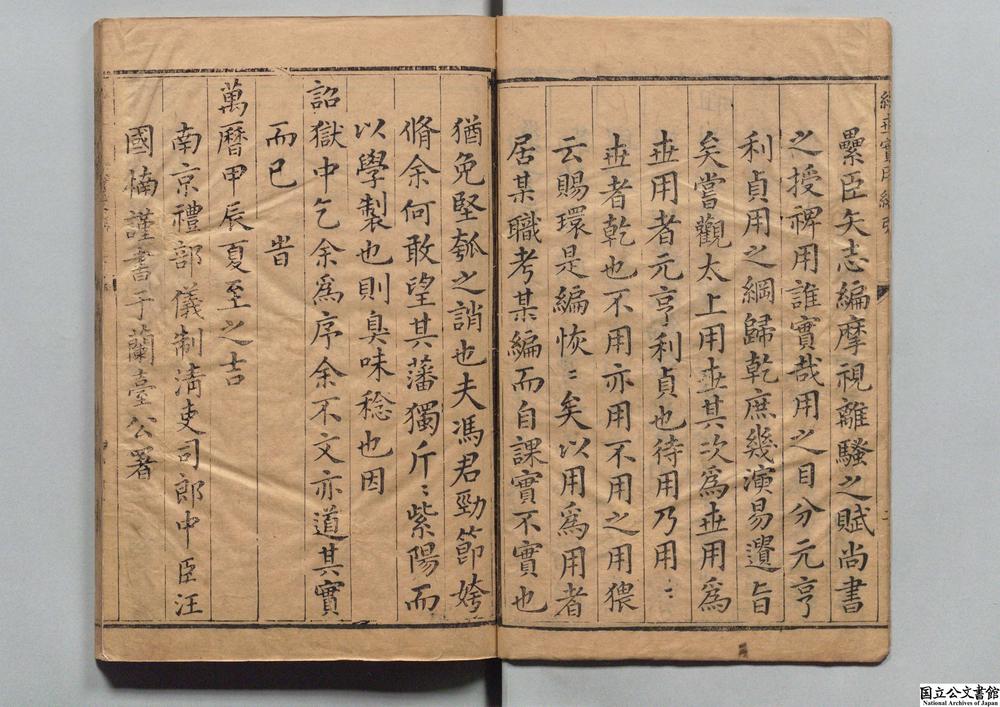 纍臣矢志編摩視離騷之賦尚書
之授裨用誰實哉用之目分元亨
利貞用之綱歸乾庶幾演易遺旨
矣嘗觀太上用丗其次爲丗用爲
丗用者元亨利貞也待用乃用〻
丗者乾也不用亦用不用之用猥
云賜環是編恢〻矣以用爲用者
居某職考某編而自課實不實也
猶免堅瓠之誚也夫馮君勁節姱
脩余何敢望其藩獨斤〻紫陽而
以學製也則臭味稔也因
詔獄中乞余爲序余不文亦道其實
而已 旹
萬曆甲辰夏至之吉
南京禮部儀制淸吏司郎中臣汪
國楠謹書于蘭臺公署
国立公文書館
National Archives of Japan